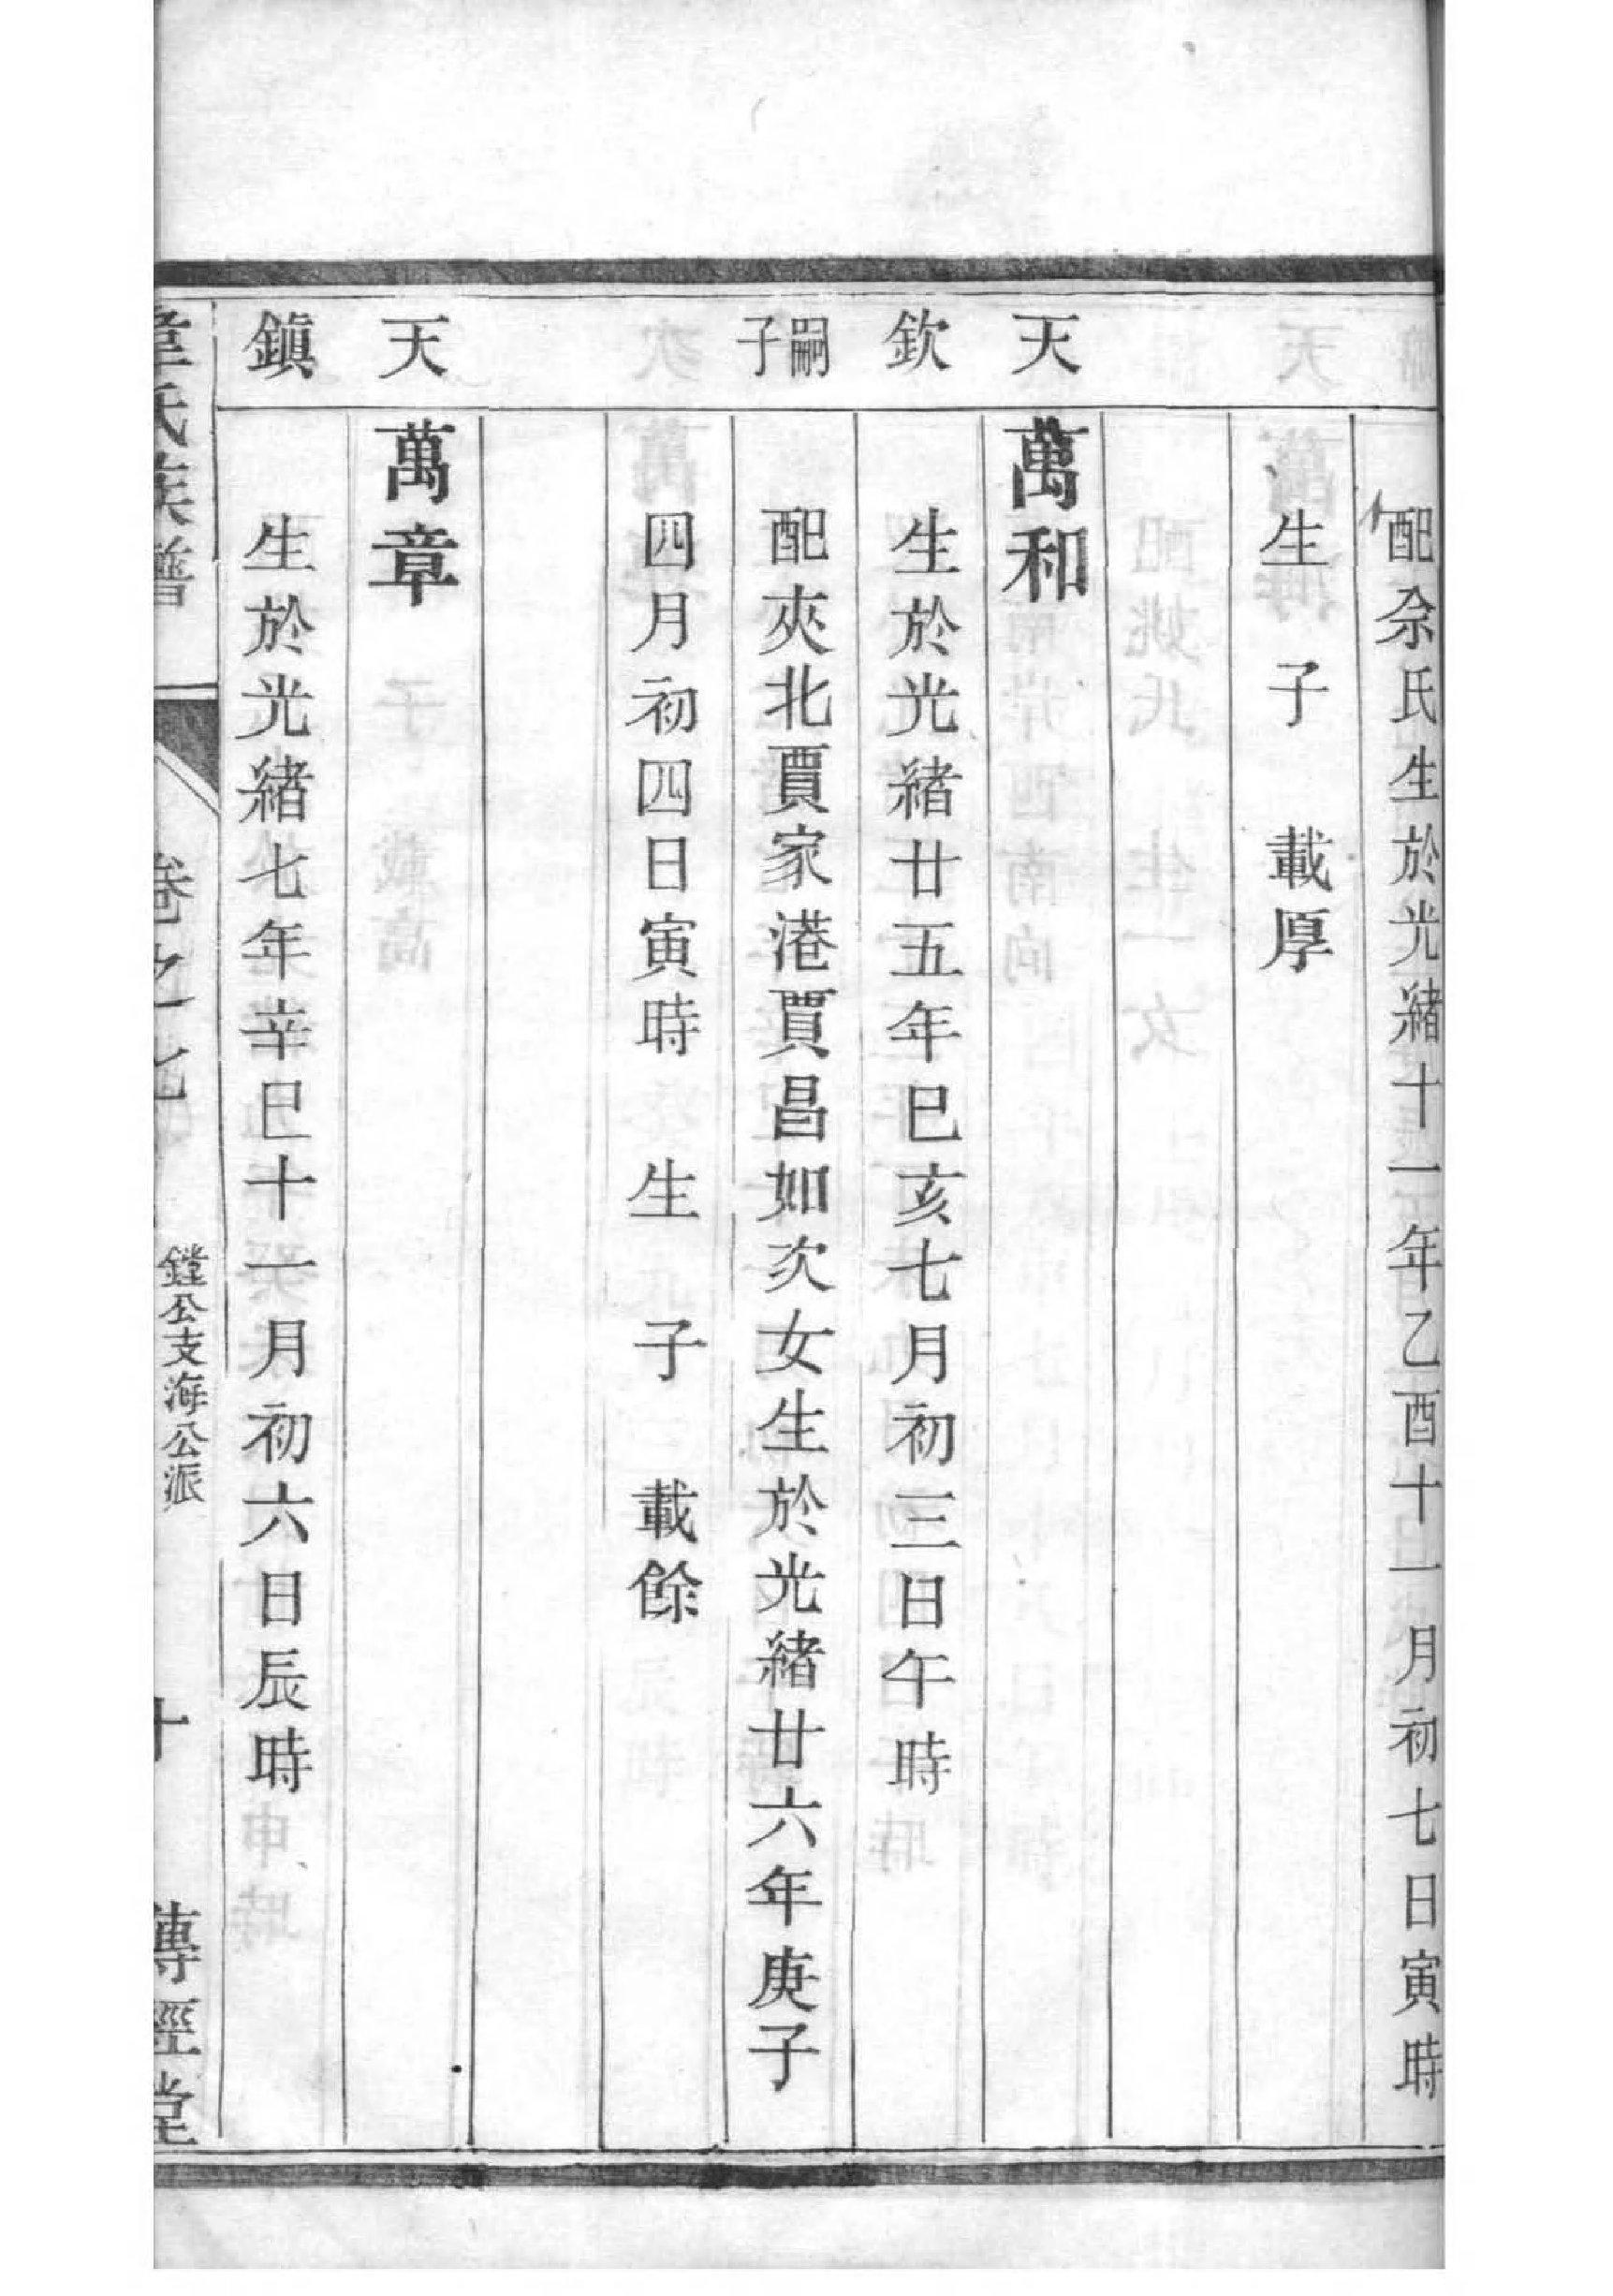 配佘氏生於光緒十一年乙酉十一月初七日寅時
生子 載厚
天
萬和
欽
生於光緒廿五年巳亥七月初三日午時
嗣子
配夾北賈家港賈昌如次女生於光緒廿六年庚子
四月初四日寅時 生 子 載餘
天
萬章
鎭
生於光緒七年辛巳十一月初六日辰時
章氏族譜 卷之七 鏜公支海公派 十 傳經堂